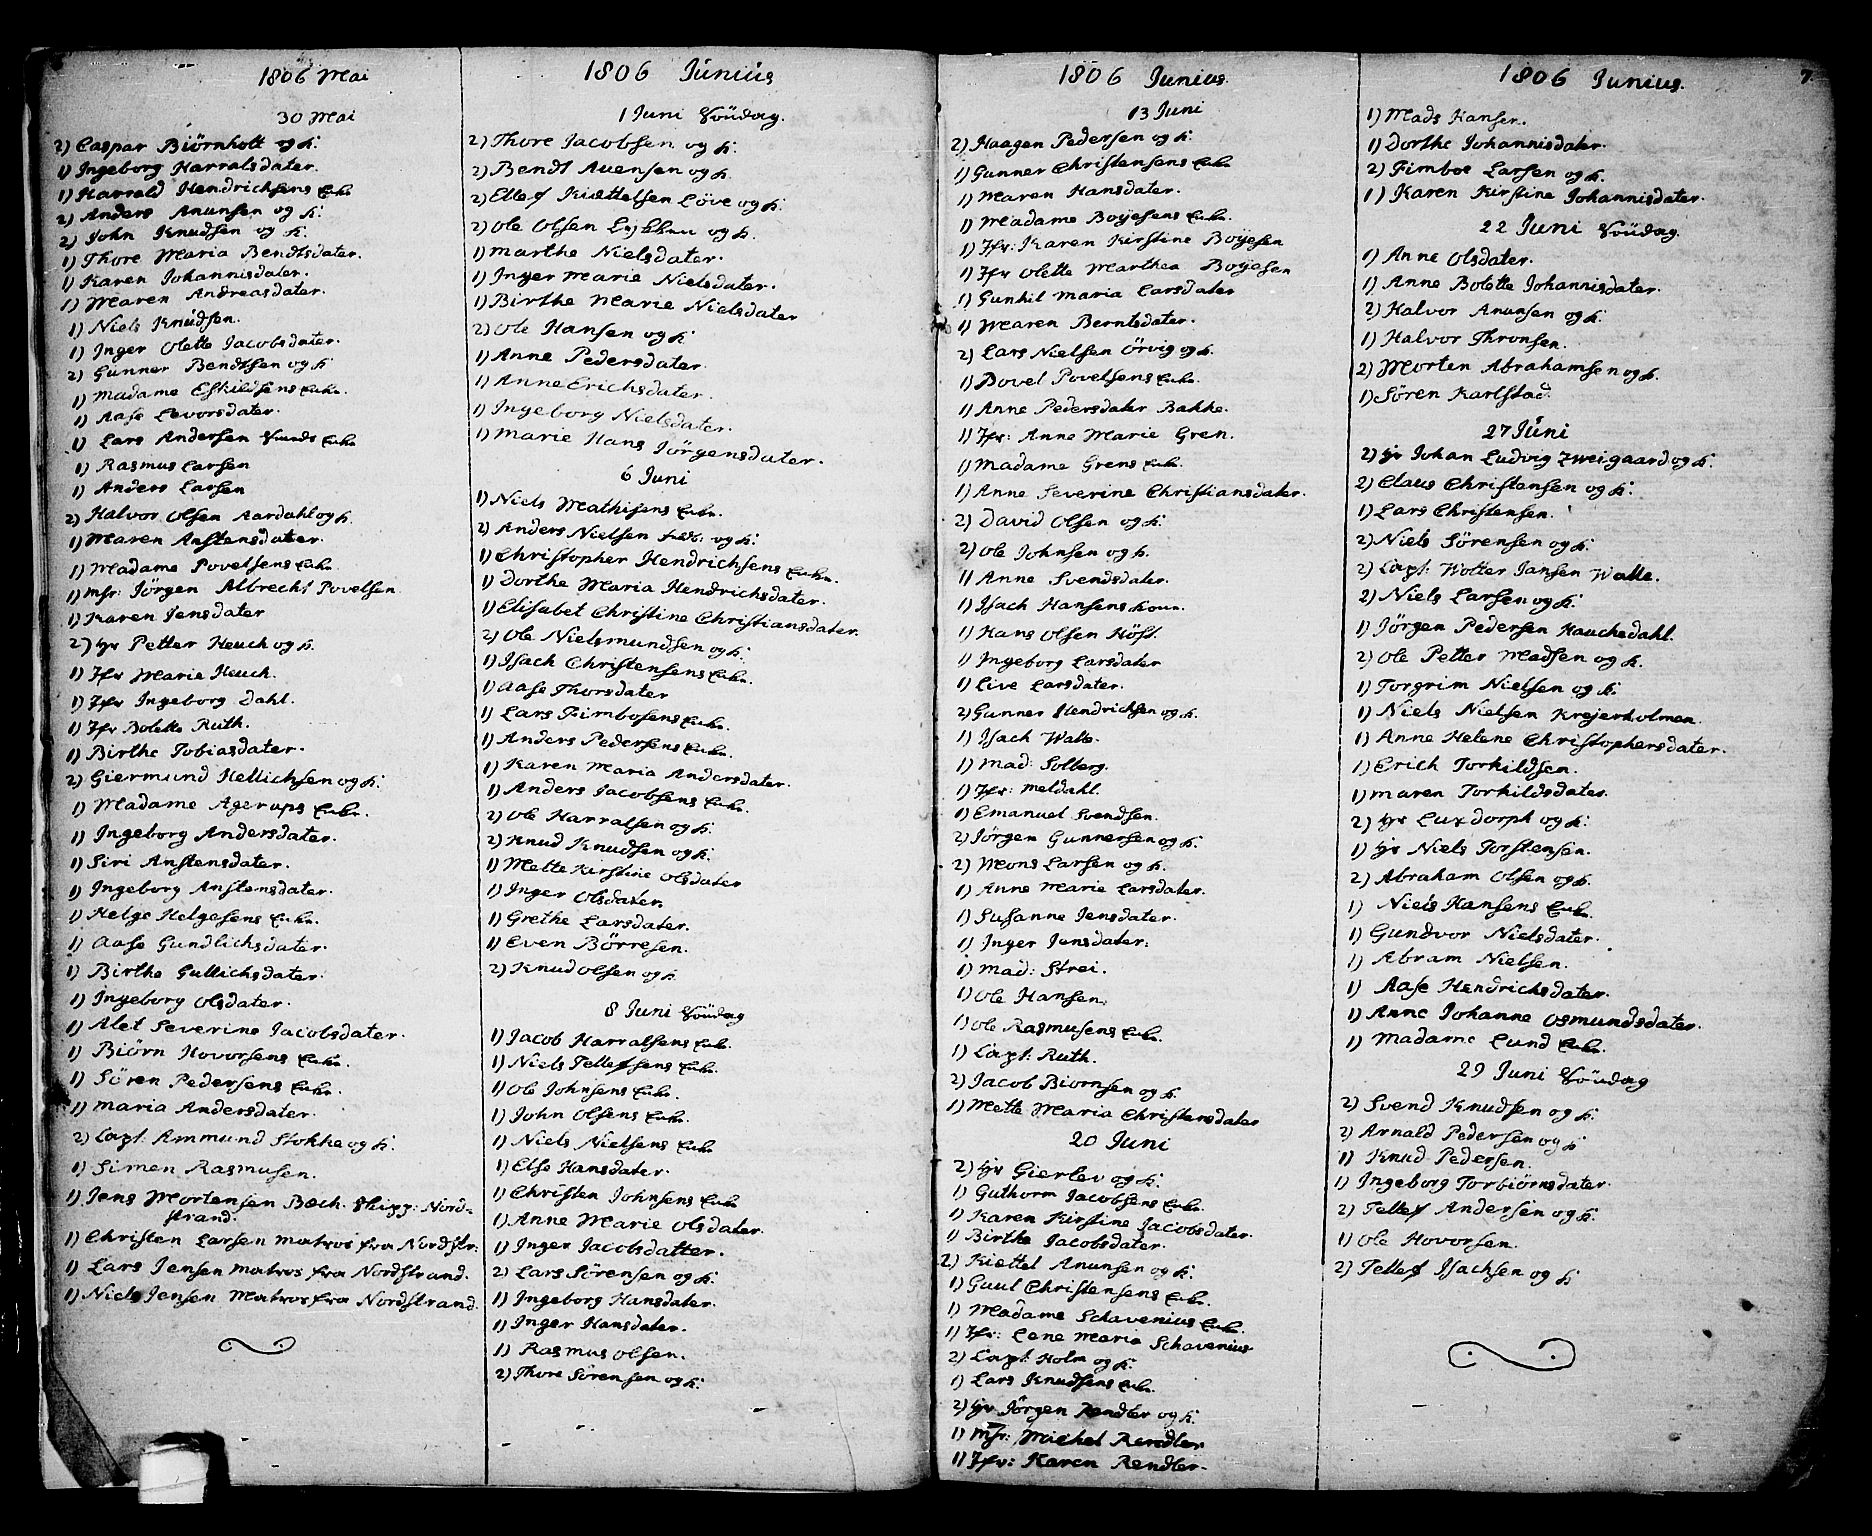 1806 Mai
30 Mai
2) Caspar Biörnholt og K:
1) Ingeborg Harralsdater.
1) Harrald Hendrichsens Enke
2) Anders Anunsen og K:
2) John Knudsen og K:
1) Thore Maria Bendtsdater.
1) Karen Johannisdater.
1) Maren Andreasdater.
1) Niels Knudsen.
1) Inger Olette Jacobsdater.
2) Gunner Bendtsen og K
1) Madame Eskildsens Enke.
1) Aase Levorsdater.
1) Lars Andersen Enke
1) Rasmus Larsen
1) Anders Larsen
2) Halvor Olsen Aardahl og K.
1) Maren Anstensdater.
1) Madame Povelsens Enke.
1) Msr: Jörgen Albrecht Povelsen
1) Karen Jensdater
2) Hr Petter Heuch og K.
1) Jfr Marie Heuch.
1) Jfr Ingeborg Dahl.
1) Jfr Bolette Ruth.
1) Birthe Tobiasdater.
2) Giermund Hellichsen og K:
1) Madame Agerups Enke.
1) Ingeborg Andersdater.
1) Siri Anstensdater.
1) Ingeborg Anstensdater.
1) Helge Helgesens Enke.
1) Aase Gundlichsdater.
1) Birthe Gullichsdater.
1) Ingeborg Olsdater.
1) Alet Severine Jacobsdater.
1) Biörn Hovorsens Enke.
1) Sören Pedersens Enke.
1) Maria Andersdater.
2) Capt. Ammund Stokke og K:
1) Simen Rasmusen.
1) Jens Mortensen Bæch. Skipp: Nord=
strand.
1) Christen Larsen Matros fra Nordstr:
1) Lars Jensen Matros fra Nordstrand.
1) Niels Jensen Matros fra Nordstrand.
1806 Junius
1 Juni Söndag.
2) Thore Jacobsen og K:
2) Bendt Auensen og K.
2) Ellef Kiættelsen Löve og K:
2) Ole Olsen og K.
1) Marthe Nielsdater.
1) Inger Marie Nielsdater.
1) Birthe Marie Nielsdater
2) Ole Hansen og K
1) Anne Pedersdater.
1) Anne Erichsdater.
1) Ingeborg Nielsdater.
1) Marie Hans Jörgensdater.
6 Juni
1) Niels Mathisens Enke.
2) Anders Nielsen og K:
1) Christopher Hendrichsens Enke.
1) Dorthe Maria Hendrichsdater.
1) Elisabet Christine Christiansdater.
2) Ole Nielsmundsen og K:
1) Isach Christensens Enke.
1) Aase Thorsdater
1) Lars Fimbosens Enke.
1) Anders Pedersens Enke.
1) Karen Maria Andersdater.
1) Anders Jacobsens Enke.
2) Ole Harralsen og K:
2) Knud Knudsen og K:
1) Mette Kirstine Olsdater
1) Inger Olsdater.
1) Grethe Larsdater.
1) Even Börresen.
2) Knud Olsen og K
8 Juni Söndag
1) Jacob Harralsens Enke.
1) Niels Tellefsens Enke.
1) Ole Johnsens Enke.
1) John Olsens Enke.
1) Niels Nielsens Enke
1) Else Hansdater.
1) Christen Johnsens Enke
1) Anne Marie Olsdater.
1) Inger Jacobsdatter.
2) Lars Sörensen og K.
1) Ingeborg Hansdater.
1) Inger Hansdater.
1) Rasmus Olsen.
2) Thore Sörensen og K:
1806 Junius.
13 Juni
2) Haagen Pedersen og K:
1) Gunner Christensens Enke
1) Maren Hansdater.
1) Madame Boyesens Enke.
1) Jfr: Karen Kirstine Boyesen
1) Jfr Olette Marthea Boyesen
1) Gunhil Maria Larsdater
1) Maren Berntsdater.
2) Lars Nielsen Örvig og K.
1) Povel Povelsens Enke.
1) Anne Pedersdater Bakke.
1) Jfr: Anne Marie Gren.
1) Madame Grens Enke.
1) Anne Severine Christiansdater.
2) David Olsen og K:
2) Ole Johnsen og K.
1) Anne Svendsdater.
1) Isach Hansens Kone.
1) Hans Olsen Höst.
1) Ingeborg Larsdater
1) Live Larsdater.
2) Gunner Hendrichsen og K.
1) Isach Walle.
1) Mad: Solberg.
1) Jfr: Meldahl.
1) Emanuel Svendsen.
2) Jörgen Gunnersen og K:
2) Mons Larsen og K.
1) Anne Marie Larsdater.
1) Susanne Jensdater.
1) Inger Jensdater:
1) Mad: Strei.
1) Ole Hansen.
1) Ole Rasmusens Enke.
1) Capt: Ruth.
2) Jacob Biornsen og K.
1) Mette Maria Christensdater
20 Juni
2) Hr Gierlev og K:
1) Guthorm Jacobsens Enke.
1) Karen Kirstine Jacobsdater.
1) Birthe Jacobsdater.
2) Kiettel Anunsen og K:
1) Guul Christensens Enke.
1) Madame Schavenius Enke.
1) Jfr: Lene Maria Schavenius
2) Capt. Holm og K:
1) Lars Knudsens Enke.
2) Hr Jörgen Rendler og K.
1) Msr: Michel Rendler
1) Jfr: Karen Rendler.
1806 Junius.
7.
1) Mads Hansen.
1) Dorthe Johannisdater.
2) Fimboe Larsen og K.
1) Karen Kirstine Johannisdater.
22 Juni Söndag.
1) Anne Olsdater.
1) Anne Bolette Johannisdater.
2) Halvor Anunsen og K:
1) Halvor Thronsen.
2) Morten Abrahamsen og K.
1) Sören Karlstad.
27 Juni
2) Hr Johan Ludvig Zweigaard og K:
2) Claus Christensen og K:
1) Lars Christensen.
2) Niels Sörensen og K:
2) Capt: Wolter Jansen Walle.
2) Niels Larsen og K:
1) Jörgen Pedersen Hauchedahl.
2) Ole Petter Madsen og K.
1) Torgrim Nielsen og K:
1) Niels Nielsen Krejerholmen
1) Anne Helene Christophersdater.
1) Erich Torkildsen.
1) Maren Torkildsdater.
2) Hr Luxdorph og K:
1) Hr Niels Torstensen.
2) Abraham Olsen og K.
1) Niels Hansens Enke.
1) Gundvor Nielsdater.
1) Abram Nielsen.
1) Aase Hendrichsdater.
1) Anne Johanne Osmundsdater.
1) Madame Lund Enke.
29 Juni Söndag
2) Svend Knudsen og K:
2) Arnald Pedersen og K
1) Knud Pedersen.
1) Ingeborg Torbiörnsdater.
2) Tellef Andersen og K:
1) Ole Hovorsen.
2) Tellef Isachsen og K